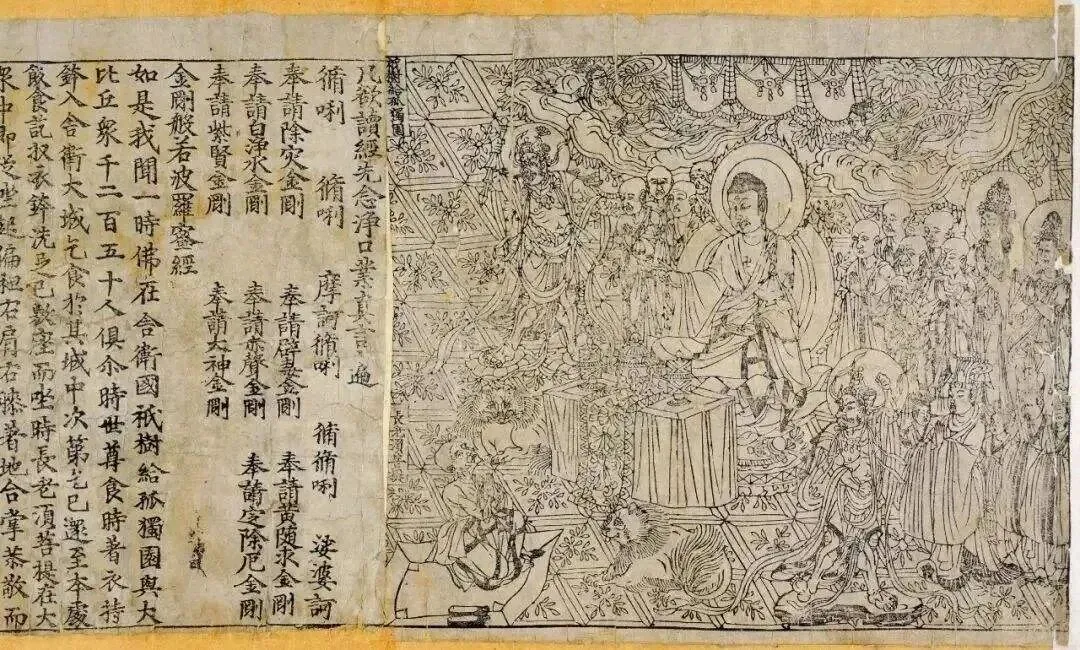 祇樹給孤獨園
凡欲讀經先念淨口業真言一遍
脩唎 脩唎 摩訶脩唎 脩脩唎 娑婆訶
奉請除灾金剛 奉請辟毒金剛 奉請黃隨求金剛
奉請白淨水金剛 奉請赤聲金剛 奉請定除厄金剛
奉請紫賢金剛 奉請大神金剛
金剛般若波羅蜜經
如是我聞一時佛在舍衛國祇樹給孤獨園與大
比丘衆千二百五十人俱尒時世尊食時著衣持
鉢入舍衛大城乞食於其城中次第乞已還至本處
飯食訖收衣鉢洗足已敷座而坐時長老須菩提在大
衆中即從座起偏袒右肩右膝著地合掌恭敬而